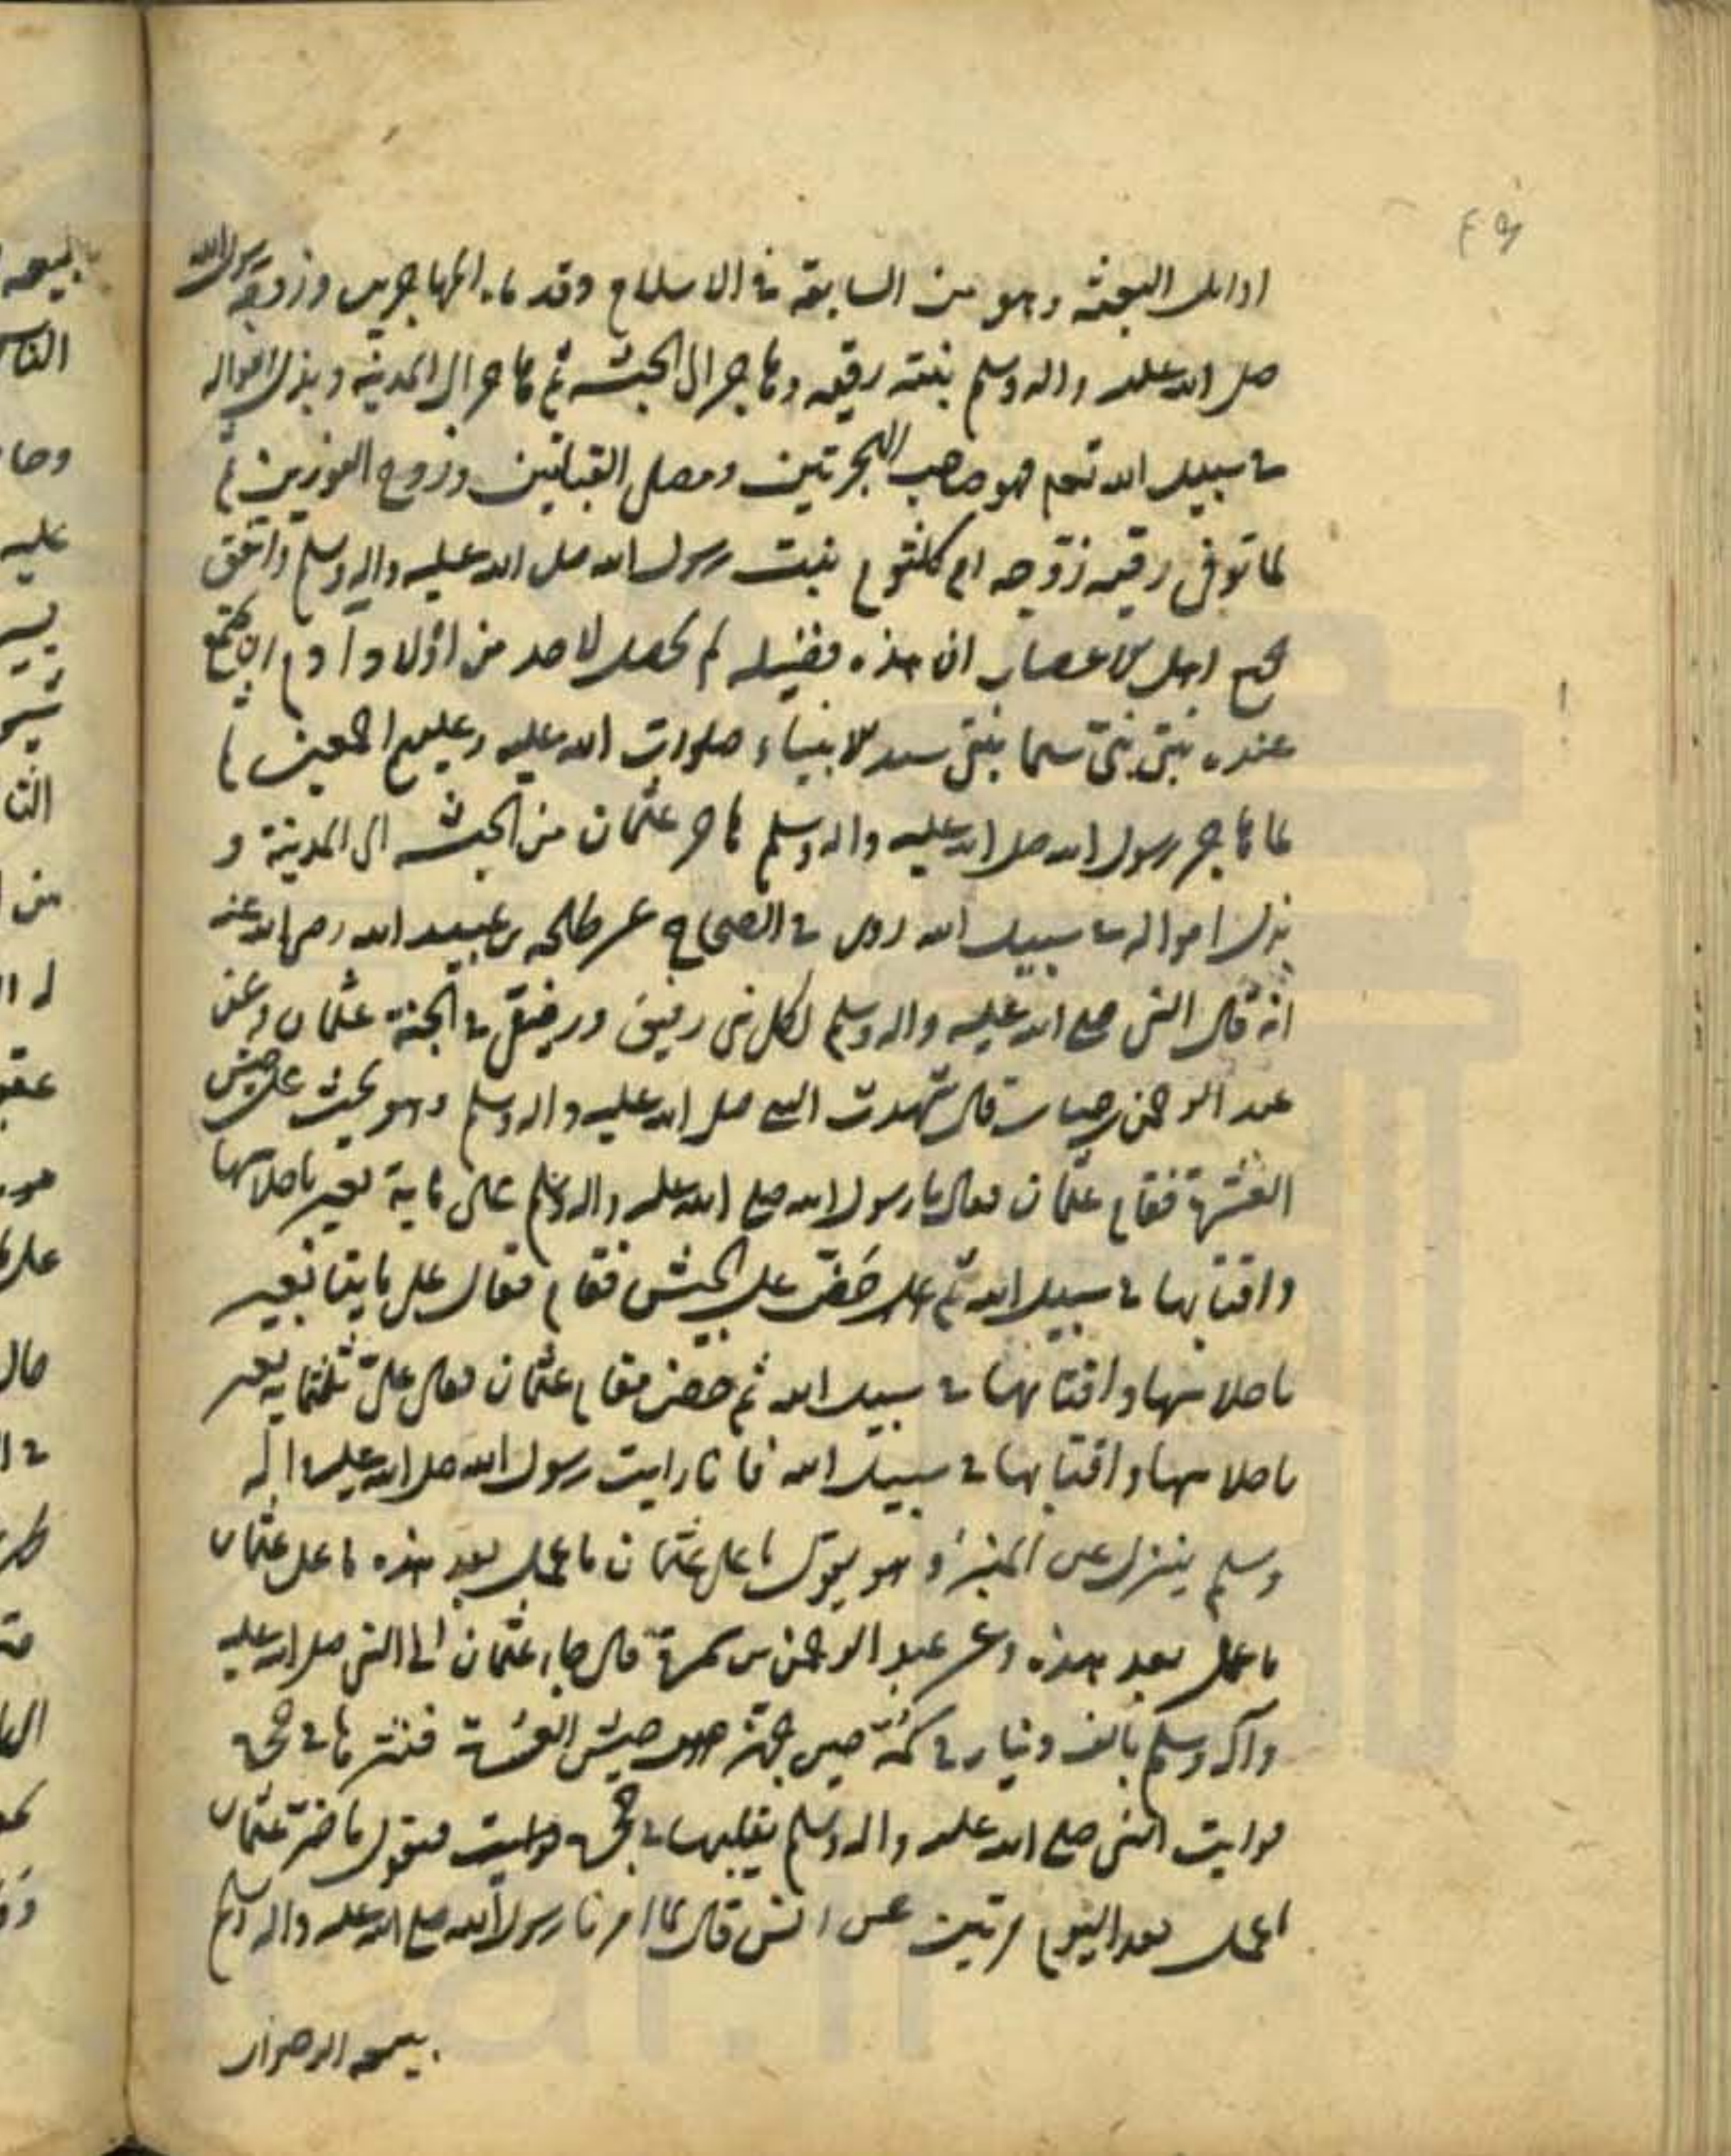 ۴۹
اوائل البعثه وهو من السابقة في الاسلام وقدماء المهاجرين وزوجه رسول الله
صلى الله عليه واله وسلم بنته رقيه وهاجر الى الحبشه ثم هاجر الى المدينه وبذل امواله
في سبيل الله تعم فهو صاحب الهجرتين ومصلى القبلتين وزوج النورين ثم
لما توفى رقيه زوّجه ام كلثوم بنت رسول الله صلى الله عليه واله وسلم واتفق
جميع اهل الاعصار ان هذه فضيله لم يحصل لاحد من اولاد آدم ان يجتمع
عنده بنتى نبىّ سيما بنتى سيد الانبياء صلوات الله عليه وعليهم اجمعين
لما هاجر رسول الله صلى الله عليه واله وسلم هاجر عثمان من الحبشه الى المدينة و
بذل امواله في سبيل الله روى في الصحاح عن طلحه بن عبيد الله رضى الله عنه
انه قال النبى صلع الله عليه واله وسلم لكل نبى رفيق ورفيقى في الجنة عثمان وعن
عبد الرحمن بن حباب قال شهدت النبي صلى الله عليه واله وسلم وهو يحث على جيش
العسرة فقام عثمان فقال يا رسول الله صلع الله عليه واله وسلم على ماية بعير باحلاسها
واقتابها في سبيل الله ثم حَضّ على الجيش فقام فقال على مايتا بعير
باحلاسها واقتابها في سبيل الله ثم حض فقام عثمان فقال علىّ ثلثمايه بعير
باحلاسها واقتابها في سبيل الله فانا رايت رسول الله صلى الله عليه واله
وسلم ينزل عن المنبر وهو يقول ما على عثمان ما عمل بعد هذه ما على عثمان
ما عمل بعد هذه وعن عبد الرحمن بن سمرة قال جاء عثمان الى النبى صلى الله عليه
وآله وسلم بالف دينار في كمّه حين جهّز جيش العسرة فنثرها في حجره
فرايت النبى صلع الله عليه واله وسلم يقلبها في حجره فيقول ما ضرّ عثمان
ما عمل بعد اليوم مرتين عن انس قال لما امرنا رسول الله صلع الله عليه واله وسلم
ببيعه الرضوان